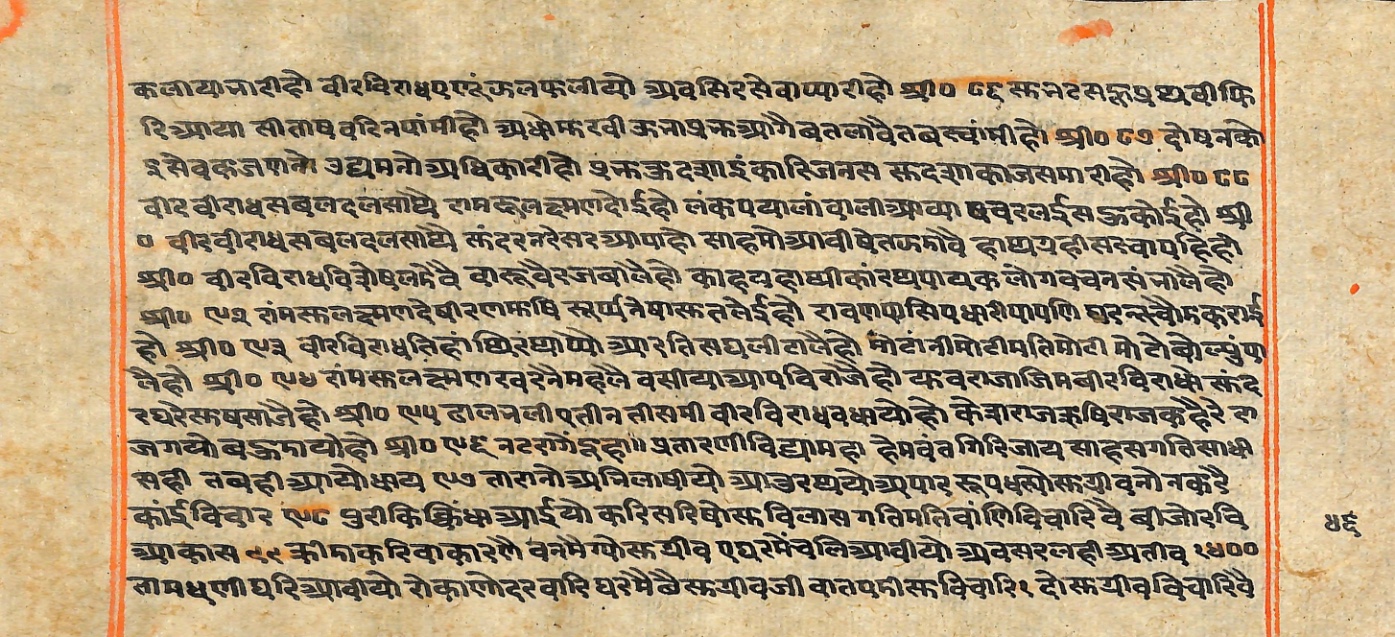 कलायाचारीहो वीरविराधपणइंफलफलीयो अवसिरसेवाप्यारीहो श्री० ८६ सुभटसहुपुण्यवीफि
रिआया सीताषबरिनपांमीहो अधोमुखी ऊभाप्रभुआगै बतलावैतबस्वांमीहो श्री० ८७ दोषनको
इसेवकजणनो उद्यमनोअधिकारीहो प्रभुऊदशाइंकारिजनस सुदशाकाजसमारीहो श्री० ८८
वीरवीराधसबलदलसाथै रामसुलछमणदोईहो लंकपयालांचालीआया षबरलईसहुकोईहो श्री
० वीरवीराधसबलदलसाथै सुंदरनरेसरआयाहो साहमोआवीषेतजमावै हाथग्रहीसरचापहिहो
श्री० वीरविराधविशेषलडैवै वासुवैरजबालैहो
श्री० ९२ रांमसुलछमणदेषीरणमुषि सूर्पनेषासुतलेईहो रावणपासिपधारीपापणि घर
हो श्री० ९३ वीरविराधतिहांथिरथाप्यो आरतिसघलीटालैहो मोटांनीमोटीमतिमोटी मोटोबोल्युंपा
लैहो श्री० ९४ रांमसुलछमणखरनैमहलै वसीयाआपविराजैहो युवराजाजिमवीरविराधो सुंद
रघरैसुषसाजैहो श्री० ९५ ढालभलीपतीनत्तीसमी वीरविराधवधायोहो केशराजऋषिराजकहैरे रा
जगयोबहुडायोहो श्री० ९६ नटरागेदूहा॥ प्रतारणीविद्यामहा हेमवंतगिरिजाय साहसगतिसाधी
सही तबहीआयोधाय ९७ तारानोअभिलाषीयो आतुरथयोअपार रूपधस्योसुग्रीवनो नकरै
कांईविचार ९८ पुरीकिष्किंधाआईयो करिसरिषोसुविलास गतिमतिवांणिविचारिवै बीजोरवि
आकास ९९ क्रीडाकरिवाकारणै वनमैग्योसुग्रीव एघरमेंचलिआवीयो अवसरलहीअतीव १४००
तामधणीघरिआवीयो रोकाणोदरबारि घरमैबैसुग्रीवजी वातपडीसुविचारि१ दोसुग्रीवविचारिवै
४६